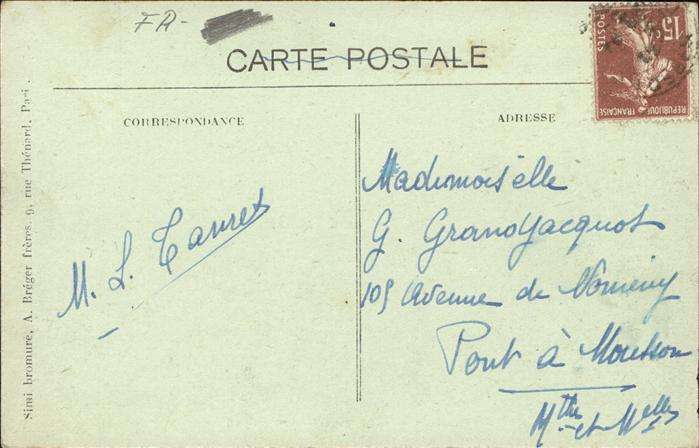 FR-
CARTE POSTALE
15c
POSTES
REPUBLIQUE FRANÇAISE
CORRESPONDANCE
ADRESSE
M. L. Tanret
Mademoiselle
G. Grandjacquot
105 Avenue de Nomeny
Pont à Mousson
Mthe et Melle
Simi bromure, A. Bréger frères, 9, rue Thénard, Paris.